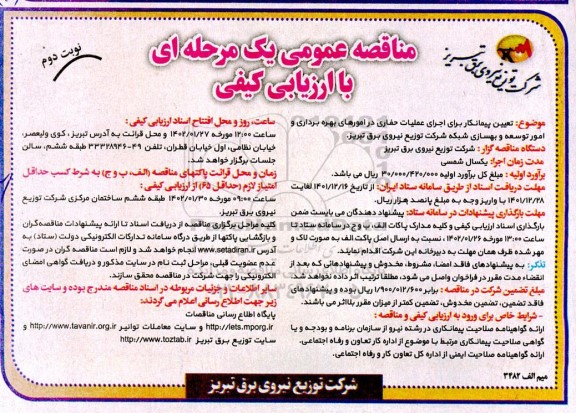 نوبت دوم
مناقصه عمومی یک مرحله ای
با ارزیابی کیفی
شرکت توزیع نیروی برق تبریز
موضوع: تعیین پیمانکار برای اجرای عملیات حفاری در امورهای بهره برداری و
امور توسعه و بهسازی شبکه شرکت توزیع نیروی برق تبریز.
دستگاه مناقصه گزار: شرکت توزیع نیروی برق تبریز
مدت زمان اجرا: یکسال شمسی
برآورد اولیه: مبلغ کل برآورد اولیه ۳۰/۰۰۰/۴۲۰/۰۰۰ ریال می باشد.
مهلت دریافت اسناد از طریق سامانه ستاد ایران: از تاریخ ۱۴۰۱/۱۲/۱۶ لغایت
۱۴۰۱/۱۲/۲۸ با واریز وجه به مبلغ پانصد هزار ریال.
مهلت بارگذاری پیشنهادات در سامانه ستاد: پیشنهاد دهندگان می بایست ضمن
بارگذاری اسناد ارزیابی کیفی و کلیه مدارک پاکات الف، ب و ج در سامانه ستاد تا
ساعت ۱۳:۰۰ مورخه ۱۴۰۲/۰۱/۲۶، نسبت به ارسال اصل پاکت الف به صورت لاک و
مهر شده ظرف همان مهلت به دبیرخانه این شرکت اقدام نمایند.
تذکر: به پیشنهادهای فاقد امضا، مشروط، مخدوش و پیشنهادهائی که بعد از
انقضاء مدت مقرر در فراخوان واصل می شود، مطلقا ترتیب اثر داده نخواهد شد.
مبلغ تضمین شرکت در مناقصه: برابر ۱/۹۰۰/۰۱۲/۶۰۰ ریال بوده و پیشنهادهای
فاقد تضمین، تضمین مخدوش، تضمین کمتر از میزان مقرر بلااثر می باشد.
- شرایط خاص برای ورود به ارزیابی کیفی و مناقصه:
ارائه گواهینامه صلاحیت پیمانکاری در رشته نیرو از سازمان برنامه و بودجه و یا
گواهی صلاحیت پیمانکاری مرتبط با موضوع از اداره کار تعاون و رفاه اجتماعی.
ارائه گواهینامه صلاحیت ایمنی از اداره کل تعاون کار و رفاه اجتماعی.
میم الف ۳۴۸۲
ساعت، روز و محل افتتاح اسناد ارزیابی کیفی:
ساعت ۱۲:۰۰ مورخه ۱۴۰۲/۰۱/۲۷ و محل قرائت به آدرس تبریز، کوی ولیعصر،
خیابان نظامی، اول خیابان قطران، تلفن ۴۹-۳۳۳۲۸۹۴۶ طبقه ششم، سالن
جلسات برگزار خواهد شد.
زمان و محل قرائت پاکتهای مناقصه (الف، ب و ج)، به شرط کسب حداقل
امتیاز لازم (حداقل ۶۵) از ارزیابی کیفی:
ساعت ۰۹:۰۰ مورخه ۱۴۰۲/۰۱/۳۰ طبقه ششم ساختمان مرکزی شرکت توزیع
نیروی برق تبریز.
کلیه مراحل برگزاری مناقصه از دریافت اسناد تا ارائه پیشنهادات مناقصه گران
و بازگشایی پاکتها از طریق درگاه سامانه تدارکات الکترونیکی دولت (ستاد) به
آدرس www.setadiran.ir انجام خواهد شد و لازم است مناقصه گران در صورت
عدم عضویت قبلی، مراحل ثبت نام در سایت مذکور و دریافت گواهی امضای
الکترونیکی را جهت شرکت در مناقصه محقق سازند.
سایر اطلاعات و جزئیات مربوطه در اسناد مناقصه مندرج بوده و سایت های
زیر جهت اطلاع رسانی اعلام می گردند:
پایگاه اطلاع رسانی مناقصات
http://iets.mporg.ir و سایت معاملات توانیر http://www.tavanir.org.ir و
سایت توزیع برق تبریز http://www.toztab.ir
شرکت توزیع نیروی برق تبریز